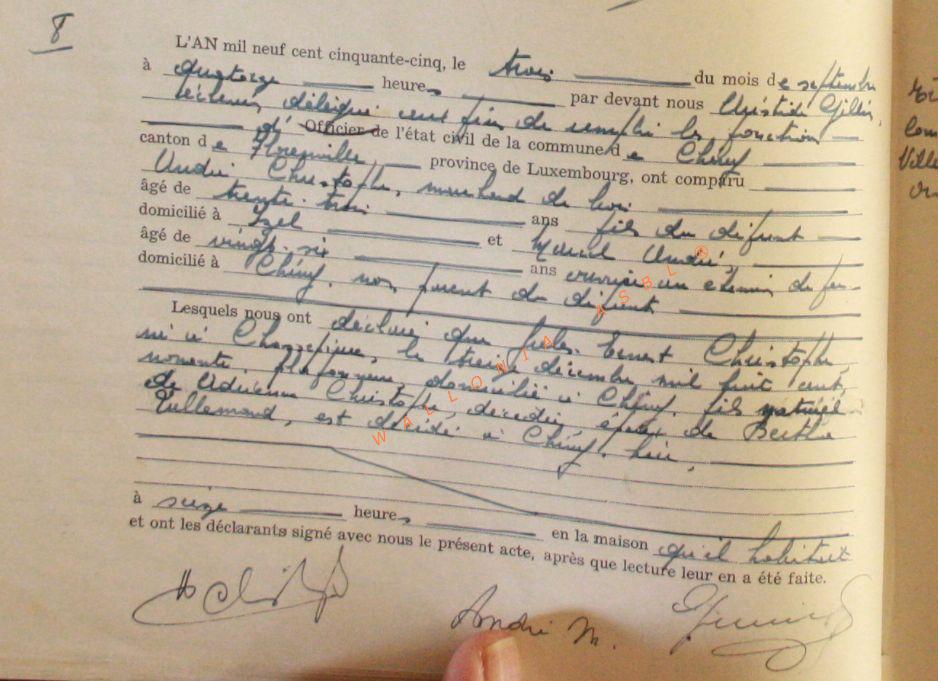 8
L'AN mil neuf cent cinquante-cinq, le trois du mois de septembre
à quatorze heures par devant nous Aristide Gillin,
échevin, délégué aux fins de remplir les fonctions
d' Officier de l'état civil de la commune de Chiny
canton de Florenville, province de Luxembourg, ont comparu
André Christophe, marchand de bois
âgé de trente-trois ans fils du défunt
domicilié à Izel et Marcel André,
âgé de vingt-six ans ouvrier au chemin de fer
domicilié à Chiny, non parent du défunt
Lesquels nous ont déclaré que Jules Ernest Christophe,
né à Chassepierre, le treize décembre mil huit cent
nonante, plafonneur, domicilié à Chiny, fils naturel
de Adrienne Christophe, décédée, époux de Bertha
Lallemand, est décédé à Chiny, hier,
à seize heures en la maison qu'il habitait
et ont les déclarants signé avec nous le présent acte, après que lecture leur en a été faite.
André M.
WALLONIA ASBL ©